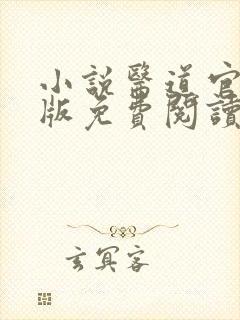 小說醫道官
版免費閱讀
玄冥客